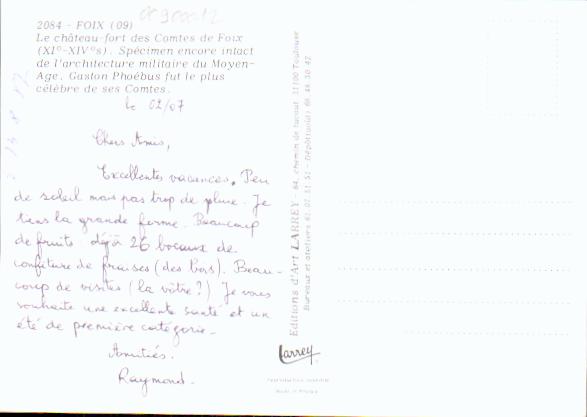 2084 - FOIX (09)
Le château-fort des Comtes de Foix
(XI°-XIV°s). Spécimen encore intact
de l'architecture militaire du Moyen-
Age. Gaston Phoébus fut le plus
célèbre de ses Comtes.
le 02/07
Chers Amis,
Excellentes vacances. Peu
de soleil mais pas trop de pluie. Je
tiens la grande forme. Beaucoup
de fruits déjà 26 bocaux de
confiture de fraises (des bois). Beau-
coup de visites (la vôtre?) Je vous
souhaite une excellente santé et un
été de première catégorie.
Amitiés.
Raymond.
Editions d'Art LARREY - 84, chemin de 31100 Toulouse
Bureaux et ateliers
Larrey